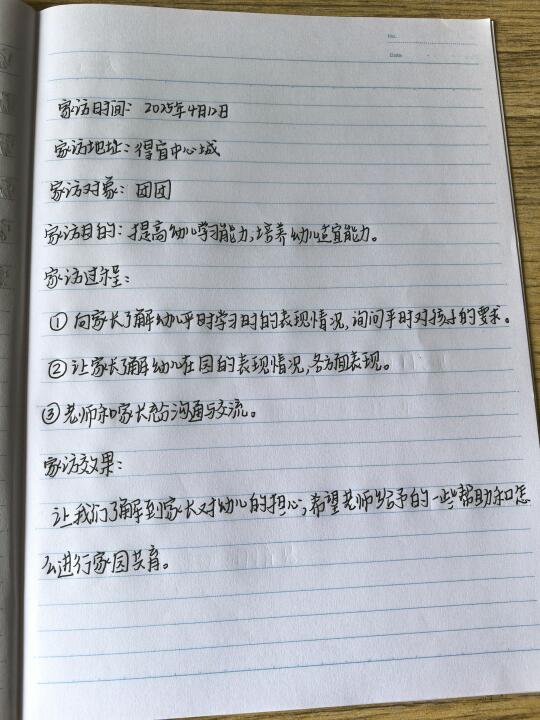 No.
Date
家访时间：2025年4月12日
家访地址：得官中心城
家访对象：团团
家访目的：提高幼儿学习能力，培养幼儿适宜能力。
家访过程：
①向家长了解幼儿平时学习时的表现情况，询问平时对孩子的要求。
②让家长了解幼儿在园的表现情况，各方面表现。
③老师和家长充分沟通与交流。
家访效果：
让我们了解到家长对幼儿的担心，希望老师给予的一些帮助和怎
么进行家园共育。